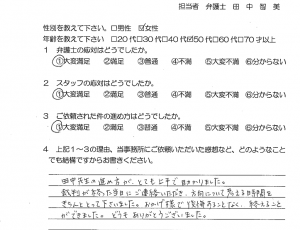 担当者 弁護士 田 中 智 美
性別を教えて下さい。 □男性 ☑女性
年齢を教えて下さい □20代□30代□40代☑50代□60代□70才以上
1 弁護士の応対はどうでしたか。
①大変満足 ②満足 ③普通 ④不満 ⑤大変不満 ⑥分からない
2 スタッフの応対はどうでしたか。
①大変満足 ②満足 ③普通 ④不満 ⑤大変不満 ⑥分からない
3 ご依頼された件の進め方はどうでしたか。
①大変満足 ②満足 ③普通 ④不満 ⑤大変不満 ⑥分からない
4 上記1~3の理由、当事務所にご依頼いただいた感想など、どのようなことでも結構ですからお書きください。
田中先生の進め方が、とても上手で助かりました。
裁判が終った日にご連絡いただき、方向について考える時間を
きちんととって下さいました。おかげ様で後悔することなく、終えること
ができました。どうもありがとうございました。